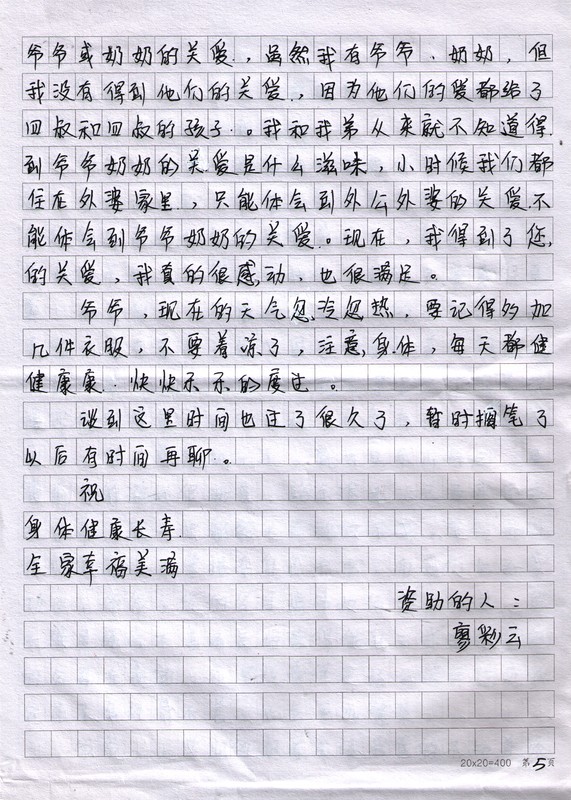 爷爷或奶奶的关爱，虽然我有爷爷、奶奶，但
我没有得到他们的关爱，因为他们的爱都给了
四叔和四叔的孩子。我和我弟从来就不知道得
到爷爷奶奶的关爱是什么滋味，小时候我们都
住在外婆家里，只能体会到外公外婆的关爱不
能体会到爷爷奶奶的关爱。现在，我得到了您
的关爱，我真的很感动，也很满足。
爷爷，现在的天气忽冷忽热，要记得多加
几件衣服，不要着凉了，注意身体，每天都健
健康康、快快乐乐的度过。
谈到这里时间也过了很久了，暂时搁笔了
以后有时间再聊。
祝
身体健康长寿
全家幸福美满
资助的人：
廖彩云
20x20=400 第5页